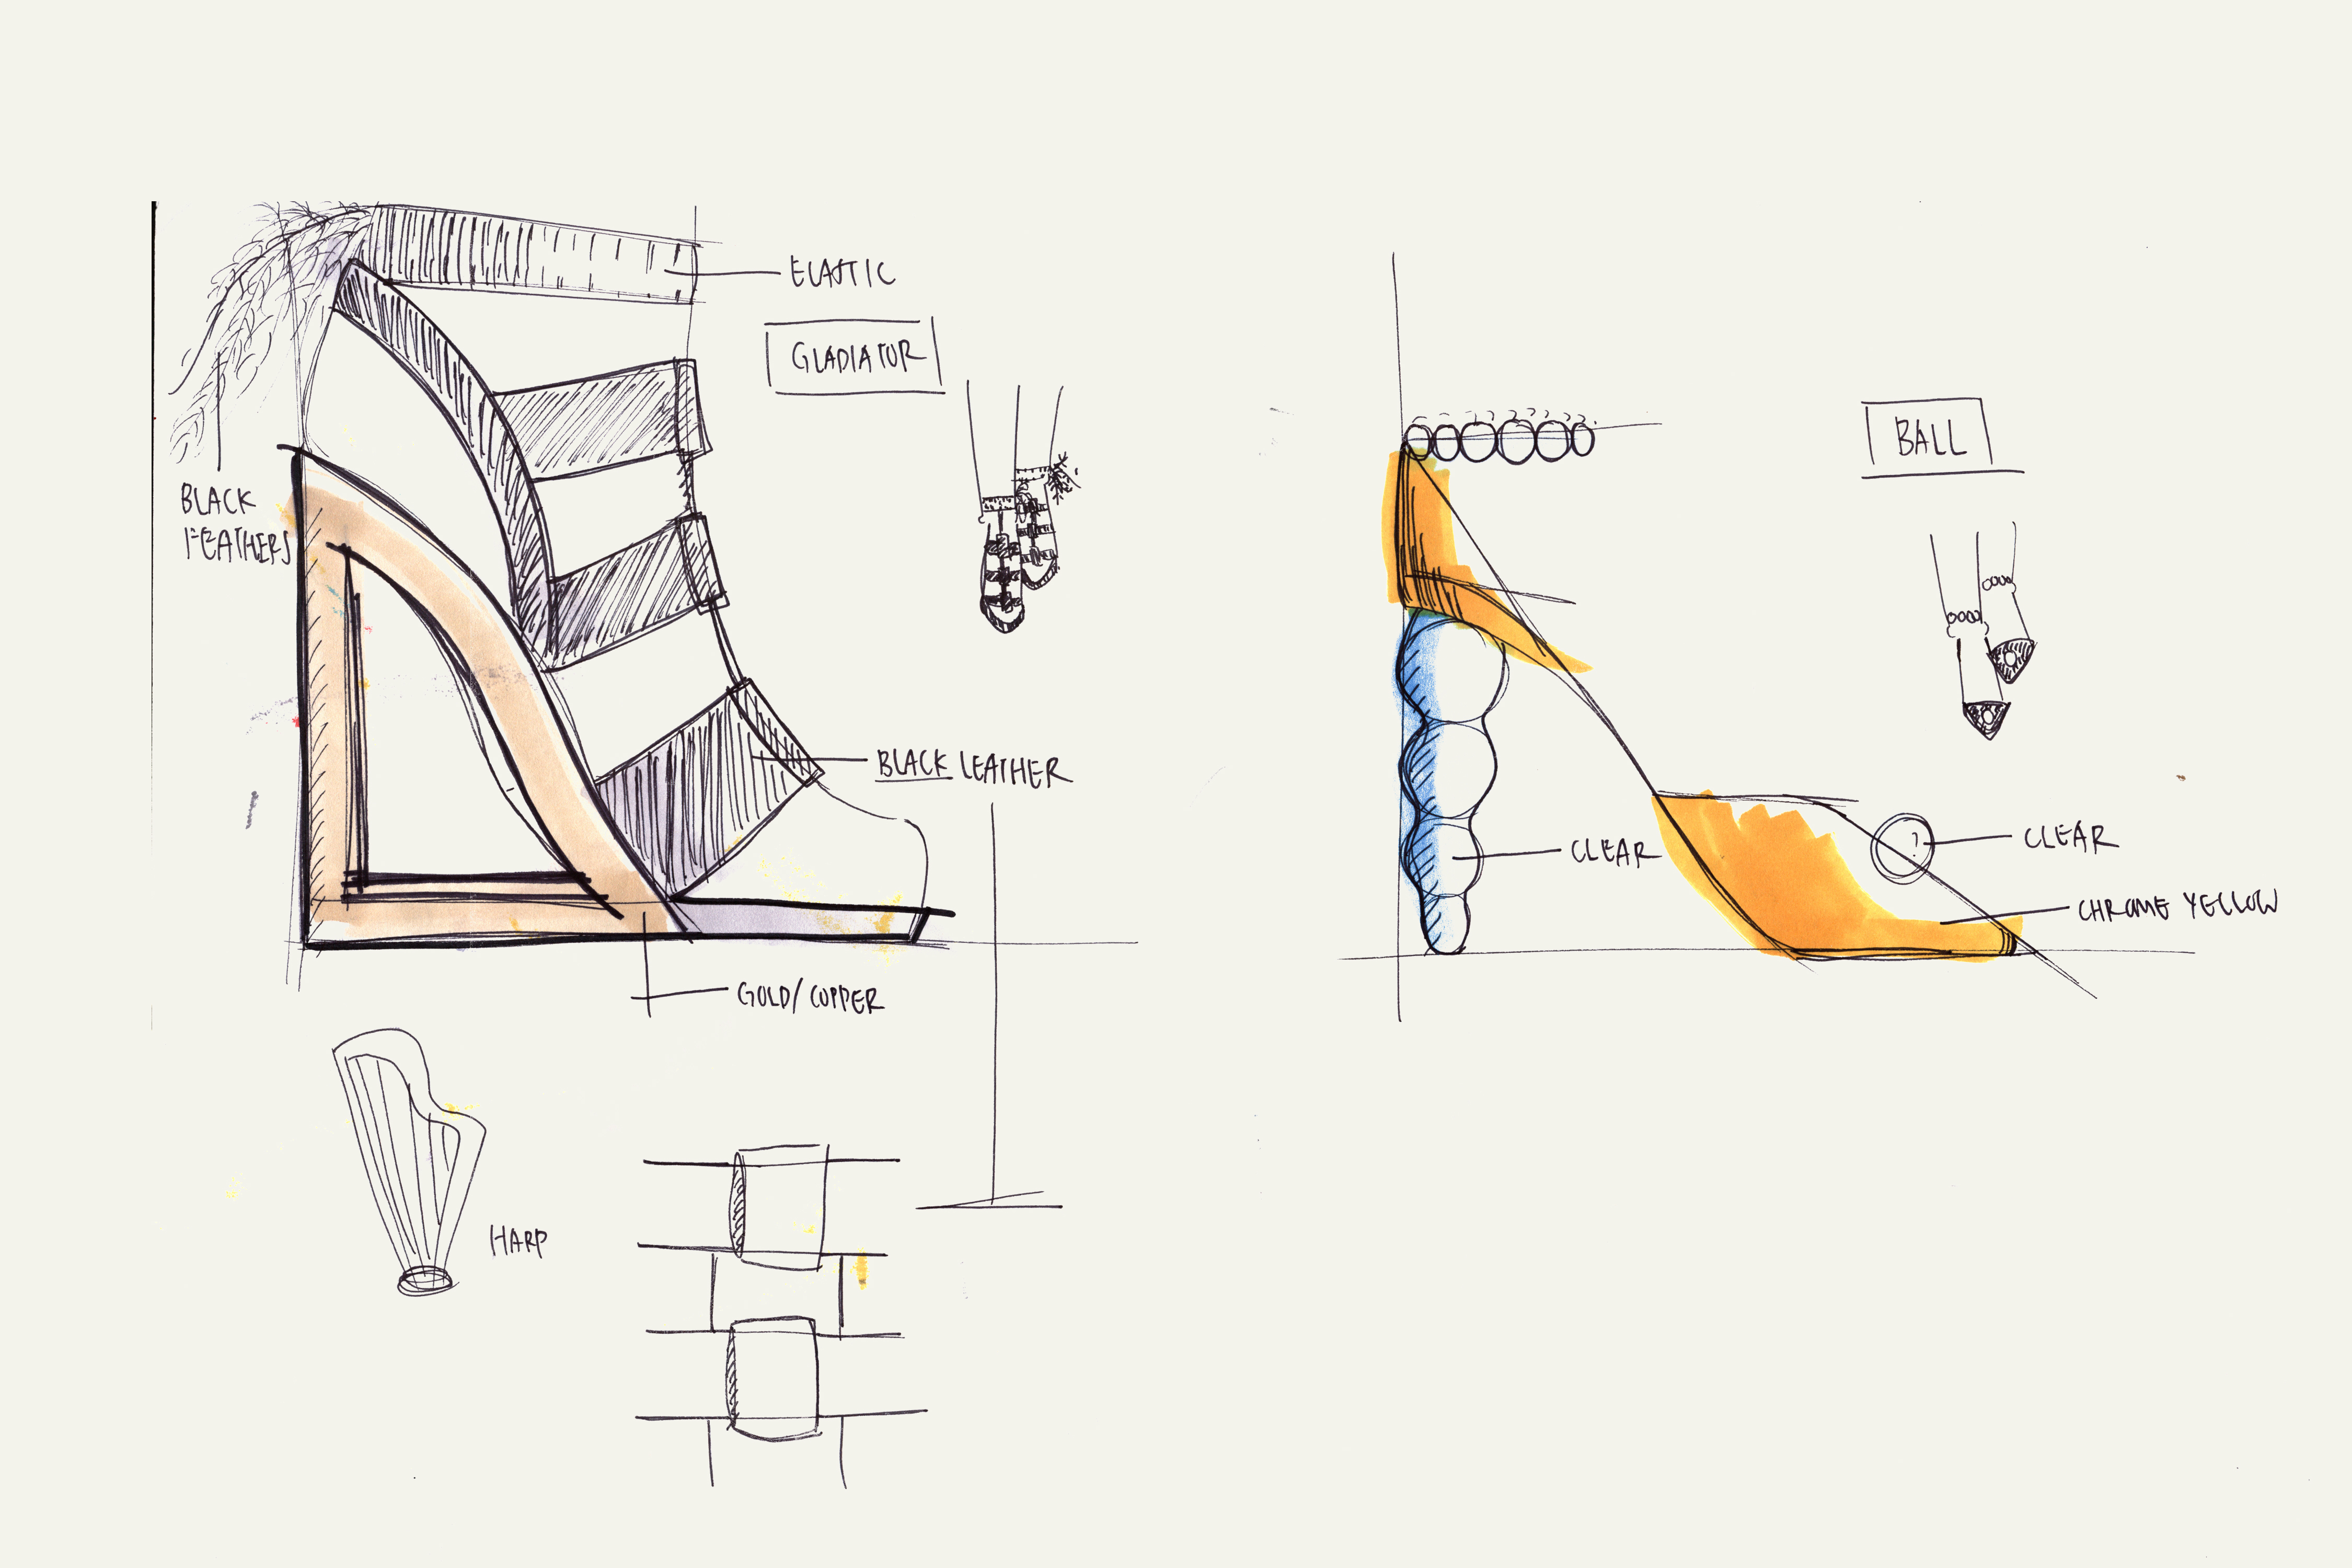 ELASTIC
GLADIATOR
BLACK
FEATHERS
BLACK LEATHER
GOLD/COPPER
HARP
BALL
CLEAR
?
CLEAR
CHROME YELLOW